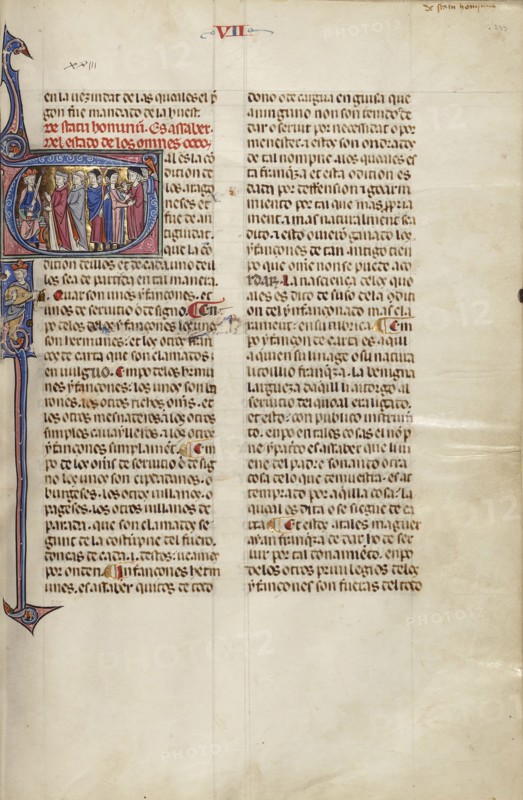 VII
de statu hominum
xxiii
en la uezindat de las quales el p̃
gon fue mandado de la huest.
De statu hominũ. Es assaber
del estado de los omnes
al es la cõ
dicion de
los arago
neses et
fue de an
tiguidat.
que la cõ
dicion dellos et de cada uno dell
los sea departida en tal manera.
Quar son unos yfançones. et
unos de seruicio o de signo. Em
po delos yfançones los unos
son hermunes. et los otros
de carta que son clamados
en uulgar. Empo delos hermu
nes yfançones. los unos son
los otros richos omnes. et
los otros mesnaderos. a los otros
simples caualleros. a los otros
yfançones simplament. Em
po de los omẽs de seruicio o de sig
no los unos son cipdadanos. o
burgeses. los otros uillanos. o
pageses. los otros uillanos de
parada. que son clamados se
gunt de la costũpne del fuero.
doncas de cada .i. destos. ueamos
por orden. Infancones herm
unes. es assaber quitos de todo
dono o de carga en guisa que
a ninguno non son tenidos de
dar o seruir por necessidat o por
menester. a estos son ondrados
de tal nompne. a los quales es
ta franqza et esta odicion es
dada por deffension
miento por tal que mas
ment. a mas naturalment sea
dito. a esto ouierõ ganado los
yfançones de tan antigo tien
po que omẽ non se puede aco
rdar. La nascienca delos qua
ales es dito de suso dela odici
on del yfançonado mas cla
rament. en su rubrica. Em
po yfançon de carta es aquil
a quien su linage o su natura
li couillio franqza. La benigna
largueza daquill li atorgo al
seruicio del qual era ligado.
et esto. con publico instrumt
to. enpo en tales cosas el nõp
ne. es assaber que li ui
ene del padre sonando otra
cosa de lo que demuestra. es at
temprado por aquilla cosa. la
qual es dita o se sigue de ca
rta. Et estos atales maguer
ayan franqza de dar. ho de ser
uir por tal donamiento. enpo
de los otros priuilegios delos
yfançones son fueras del todo